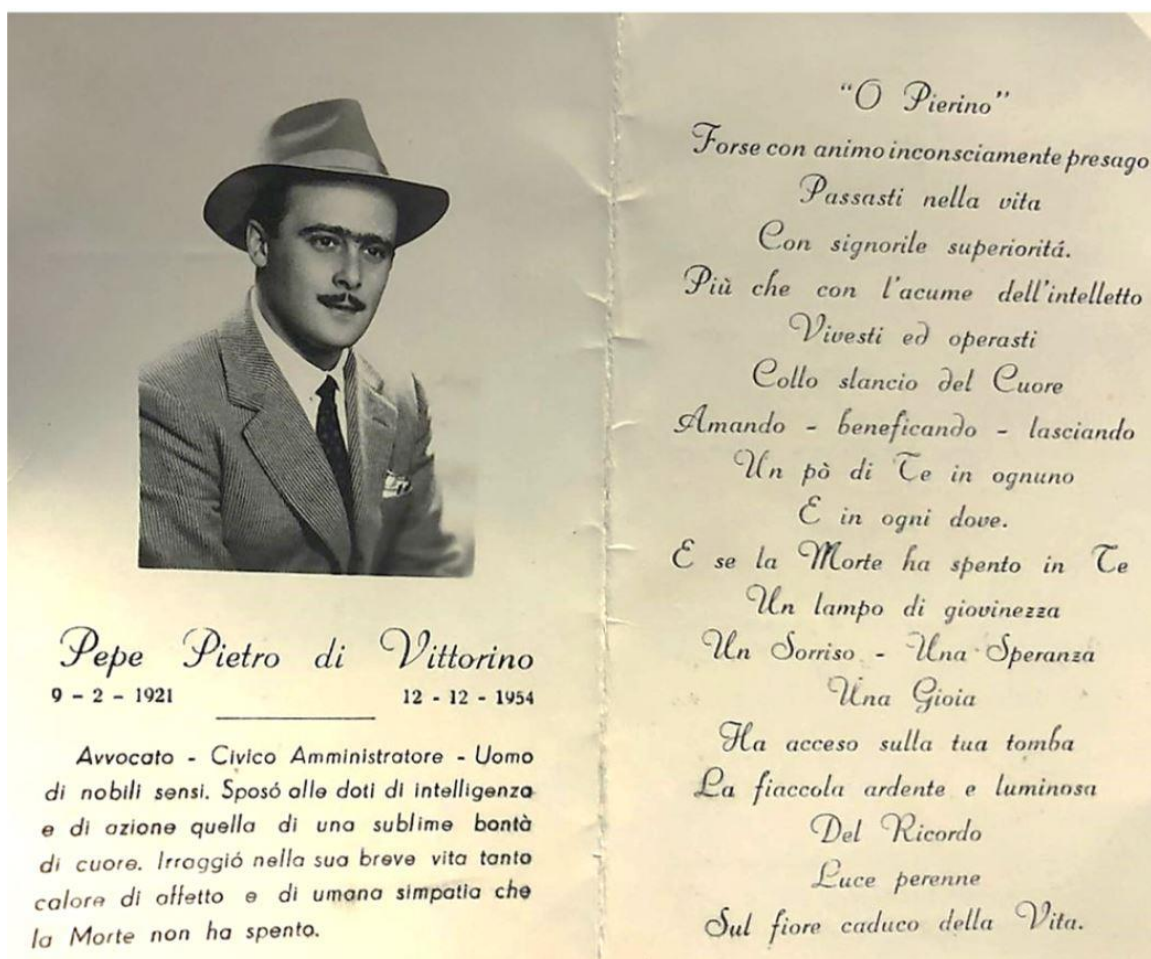 Pepe Pietro di Vittorino
9 - 2 - 1921 12 - 12 - 1954
Avvocato - Civico Amministratore - Uomo
di nobili sensi. Sposó alle doti di intelligenza
e di azione quella di una sublime bontà
di cuore. Irraggió nella sua breve vita tanto
calore di affetto e di umana simpatia che
la Morte non ha spento.
"O Pierino"
Forse con animo inconsciamente presago
Passasti nella vita
Con signorile superioritá.
Più che con l'acume dell'intelletto
Vivesti ed operasti
Collo slancio del Cuore
Amando - beneficando - lasciando
Un pò di Te in ognuno
E in ogni dove.
E se la Morte ha spento in Te
Un lampo di giovinezza
Un Sorriso - Una Speranza
Una Gioia
Ha acceso sulla tua tomba
La fiaccola ardente e luminosa
Del Ricordo
Luce perenne
Sul fiore caduco della Vita.